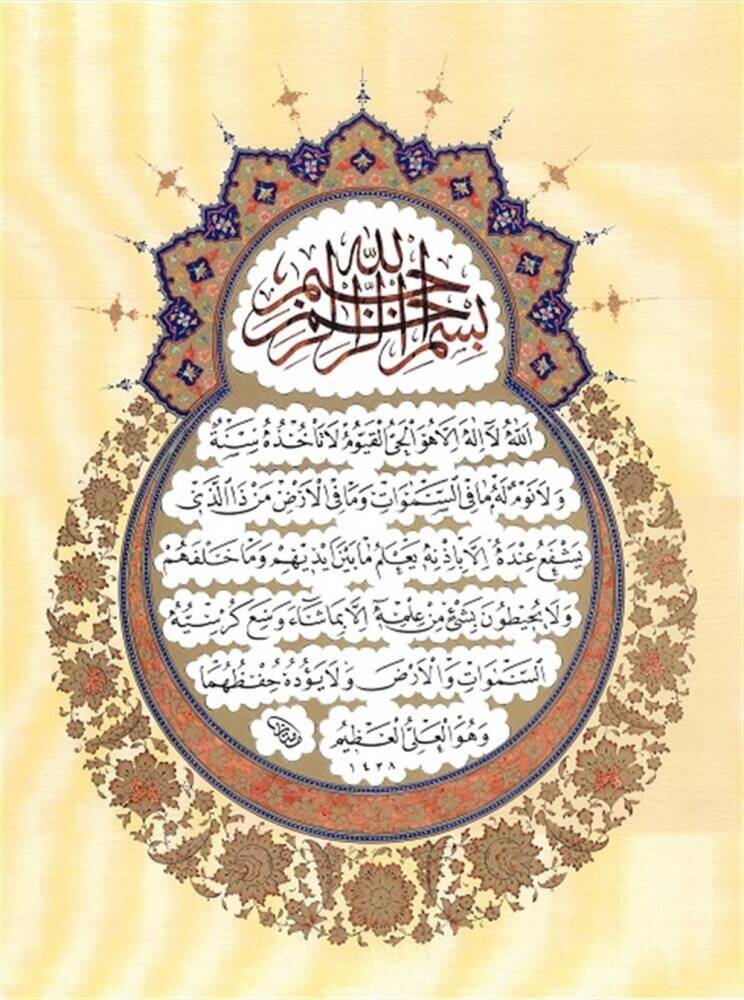 بِسْمِ اللهِ الرَّحْمٰنِ الرَّحِيمِ
اَللهُ لَا اِلٰهَ اِلَّا هُوَ الْحَىُّ الْقَيُّومُ لَا تَأْخُذُهُ سِنَةٌ
وَلَا نَوْمٌ لَهُ مَا فِى السَّمٰوَاتِ وَمَا فِى الْاَرْضِ مَنْ ذَا الَّذِى
يَشْفَعُ عِنْدَهُ اِلَّا بِاِذْنِهِ يَعْلَمُ مَا بَيْنَ اَيْدِيهِمْ وَمَا خَلْفَهُمْ
وَلَا يُحِيطُونَ بِشَىْءٍ مِنْ عِلْمِهِ اِلَّا بِمَا شَاءَ وَسِعَ كُرْسِيُّهُ
السَّمٰوَاتِ وَالْاَرْضَ وَلَا يَؤُدُهُ حِفْظُهُمَا
وَهُوَ الْعَلِىُّ الْعَظِيمُ
١٤٣٨